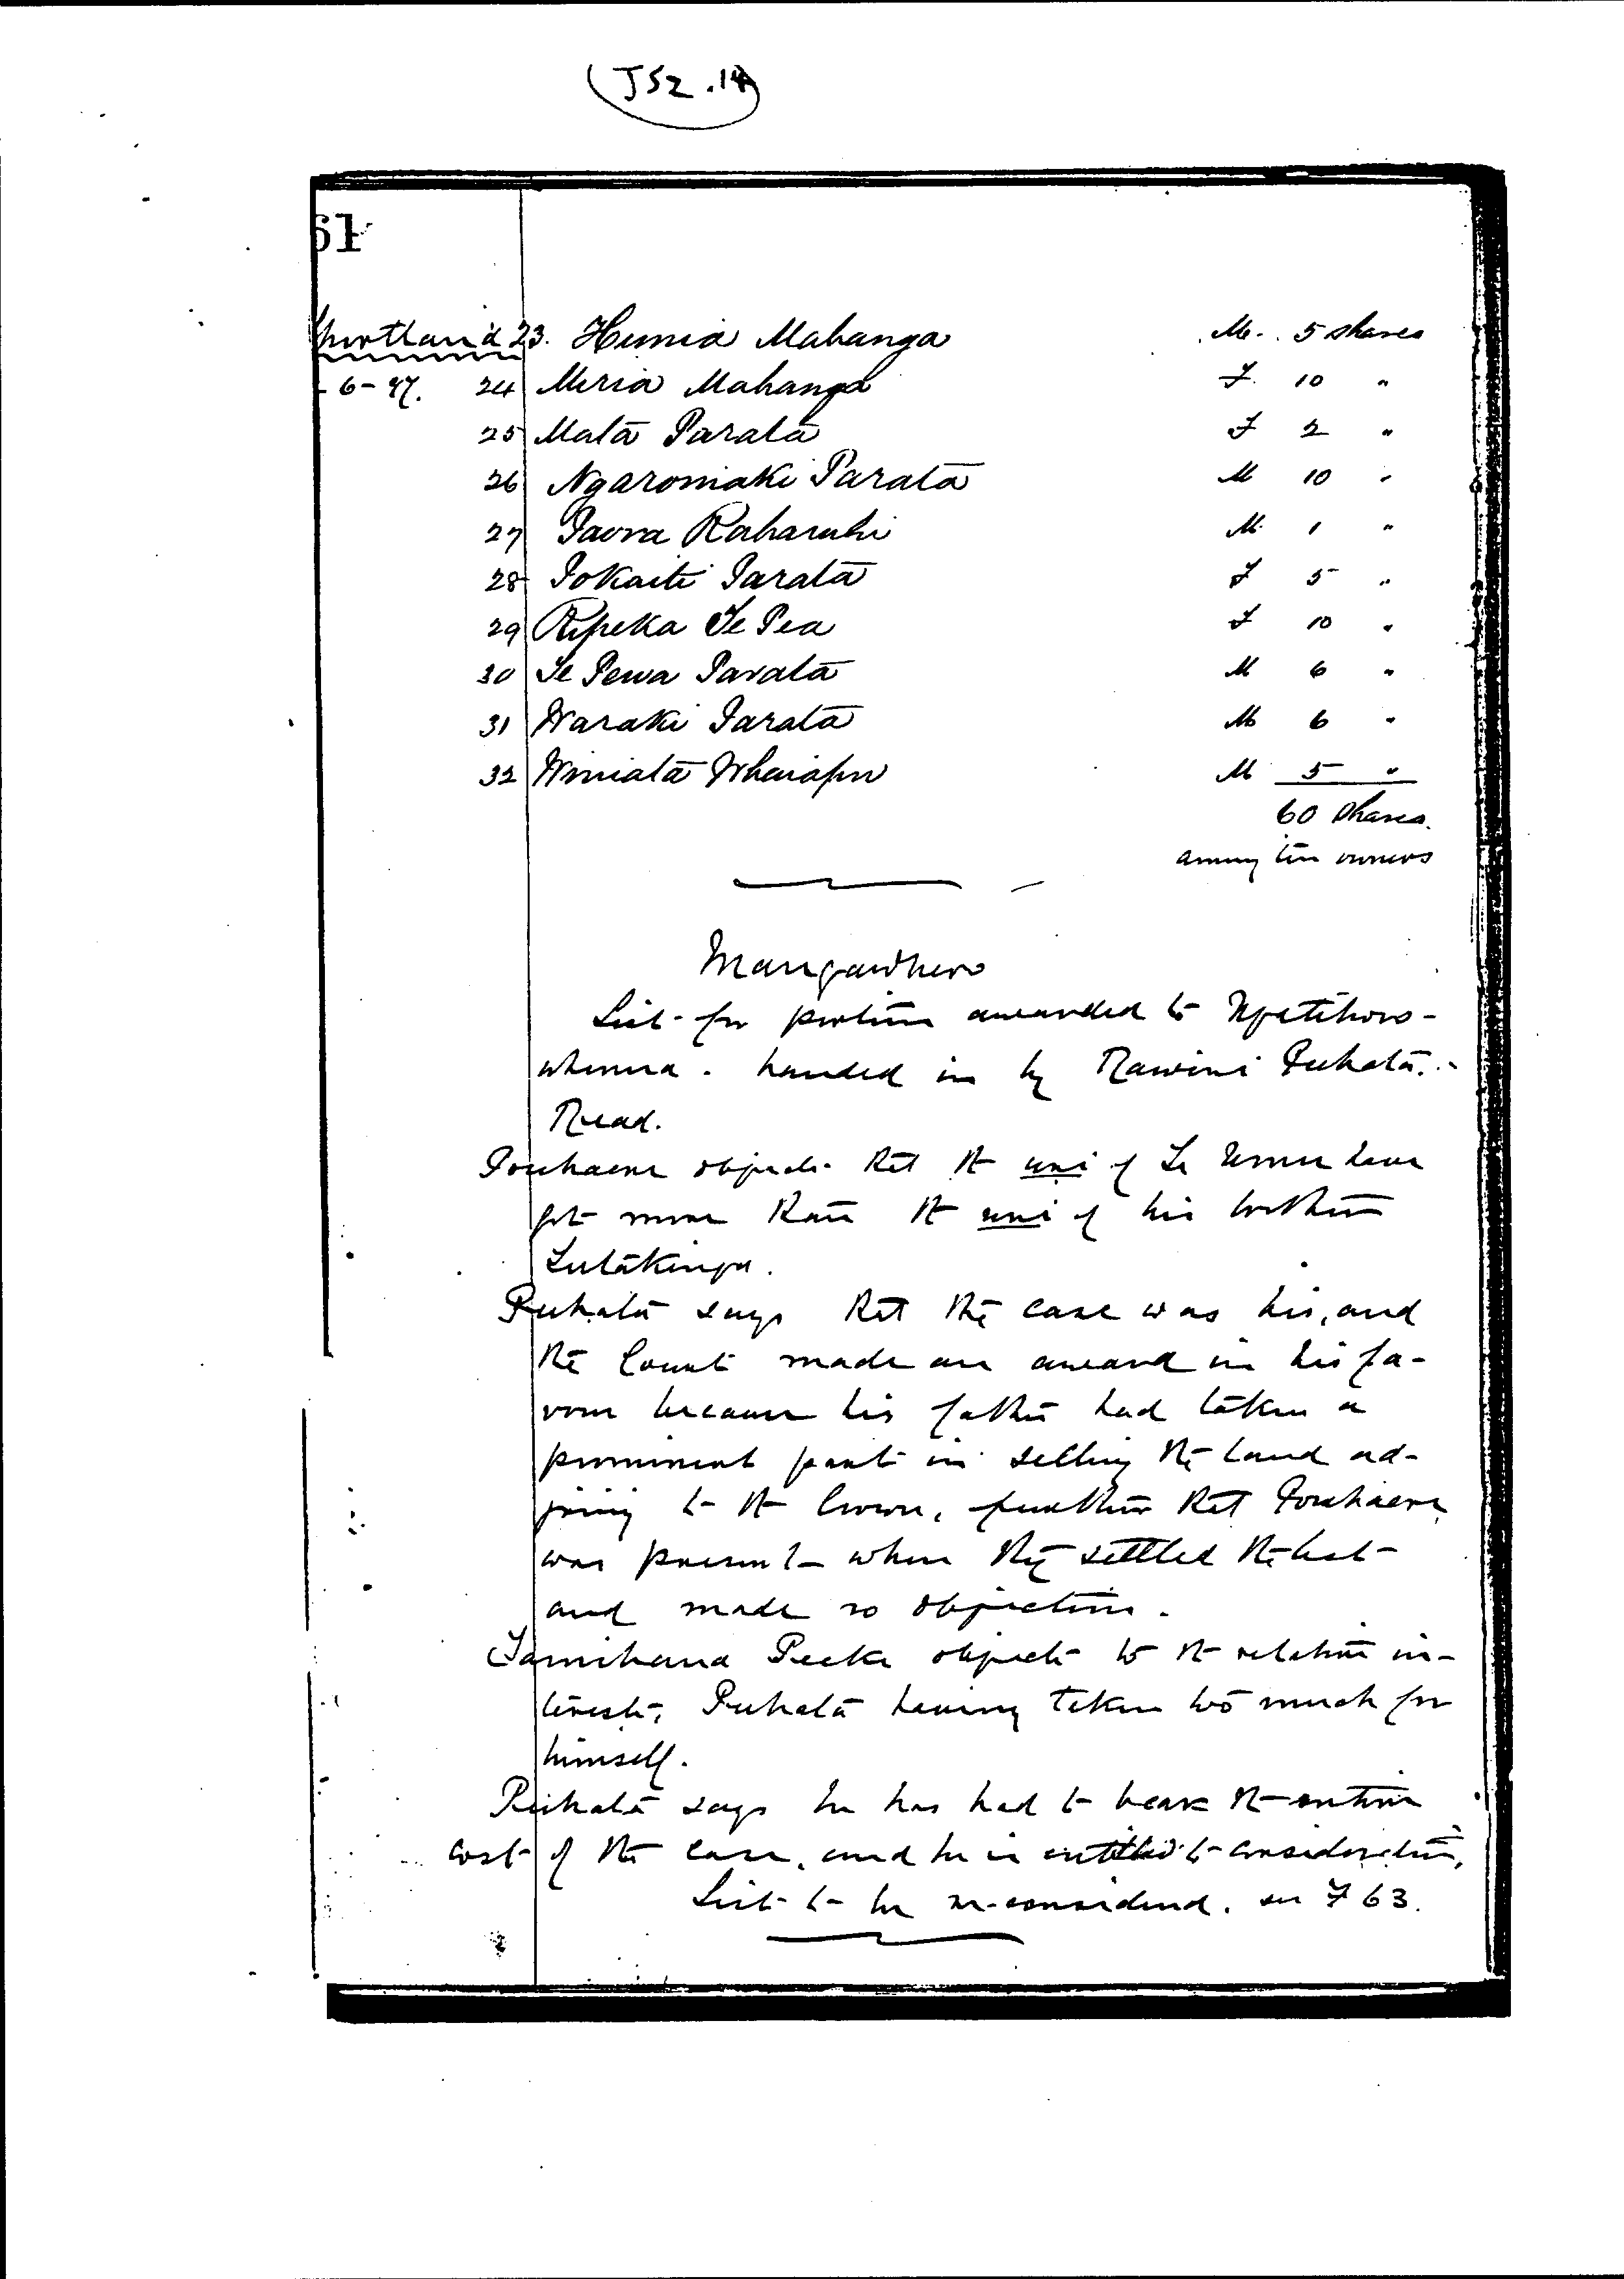 (J52.14)
61
Shortland 23. Hunia Mahanga M. 5 shares
-6-97. 24 Meria Mahanga F. 10 "
25 Mata Parata F 2 "
26 Ngaromaki Parata M 10 "
27 Paora Raharuhi M. 1 "
28 Pokaiti Parata F 5 "
29 Ripeka Te Pea F 10 "
30 Te Pewa Parata M 6 "
31 Waraki Parata M 6 "
32 Winiata Whaiapu M 5 "
60 shares.
among ten owners
Mangawhero
List for portion awarded to Ngatikoro-
whenua. handed in by Rawiri Puhata.
Read.
objects that the uri of Te have
got more than the uri of his brother
Tutakinga.
Puhata says that the case was his, and
the Court made an award in his fa-
vour because his father had taken a
prominent part in selling the land ad-
joing to the Crown, further that
was present when they settled the list
and made no objection.
Tamihana objects to the relative in-
terests, Puhata having taken too much for
himself.
Puhata says he has had to bear the entire
cost of the case, and he is entitled to consideration,
List to be re-considered. see F 63.